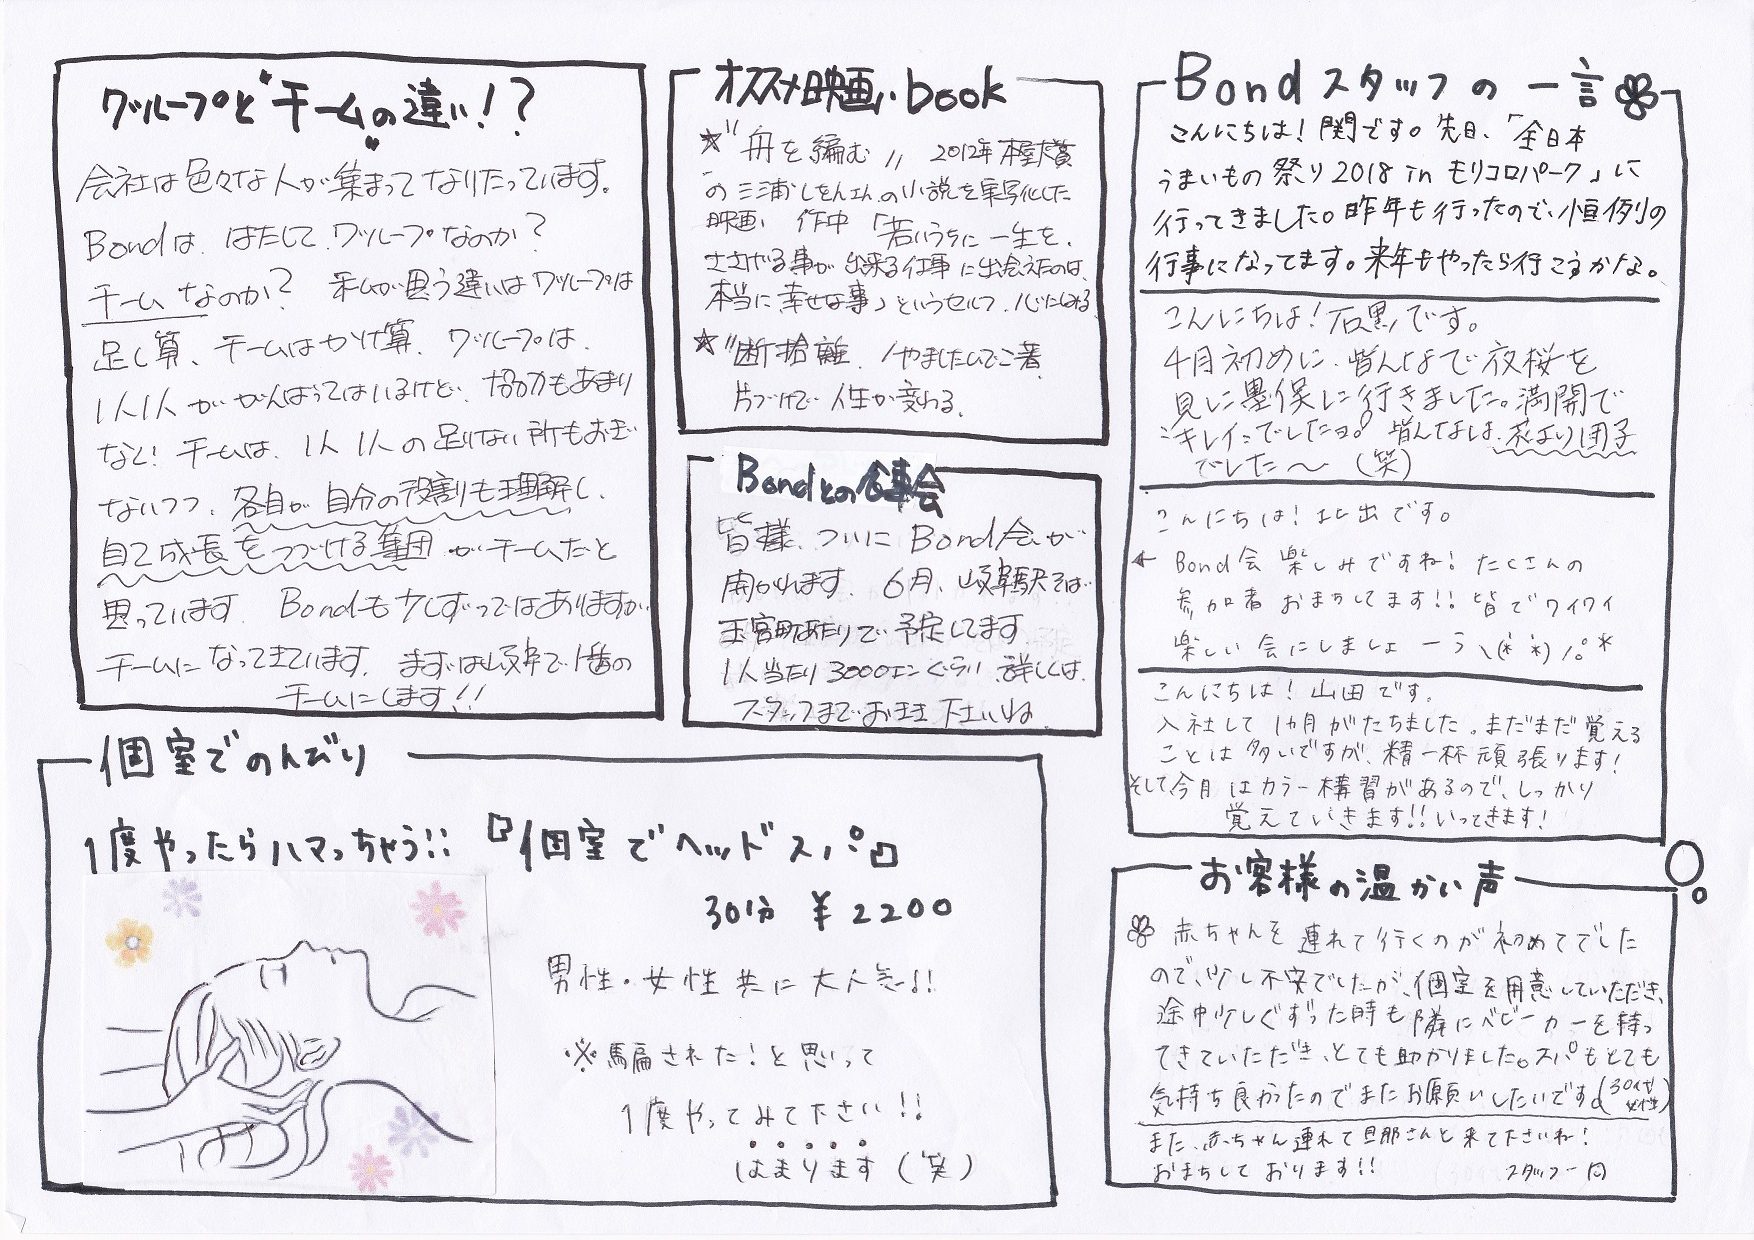 グループと"チーム"の違い!?
会社は色々な人が集まってなりたっています。
Bondは、はたして、グループなのか?
チームなのか? 私が思う違いはグループは
足し算、チームはかけ算、グループは、
1人1人ががんばってはいるけど、協力もあまり
なく! チームは、1人1人の足りない所もおぎ
ないつつ、各自が自分の役割りも理解し、
自己成長をつづける集団がチームだと
思っています。Bondも少しずつではありますが
チームになってきています。まずは岐阜で1番の
チームにします!!
オススメ映画、book
☆"舟を編む" 2012年本屋大賞
の三浦しをんさんの小説を実写化した
映画、作中「若いうちに一生を、
ささげる事が出来る仕事に出会えたのは、
本当に幸せな事」というセルフ、心にしみる
☆"断捨離" /やましたひでこ著
片づけで人生が変わる。
Bondとの食事会
皆様、ついにBond会が
開かれます。6月、岐阜駅そば
玉宮町あたりで予定してます
1人当たり3000エンぐらい 詳しくは、
スタッフまでおきき下さいね
Bondスタッフの一言
こんにちは!関です。先日、「全日本
うまいもの祭り2018 in モリコロパーク」に
行ってきました。昨年も行ったので、恒例の
行事になってます。来年もやったら行こうかな。
こんにちは!石黒です。
4月初めに、皆んなで夜桜を
見に墨俣に行きました。満開で
キレイでしたヨ。皆んなは、花より団子
でした〜 (笑)
こんにちは!北出です。
← Bond会 楽しみですね! たくさんの
参加者おまちしてます!! 皆でワイワイ
楽しい会にしましょーう\(* *)/。*
こんにちは!山田です。
入社して1ヵ月がたちました。まだまだ覚える
ことは多いですが、精一杯頑張ります!
そして今月はカラー構習があるので、しっかり
覚えていきます!!いってきます!
個室でのんびり
1度やったらハマっちゃう!! 『個室でヘッドスパ』
30分 ¥2200
男性・女性共に大人気!!
※騙された!と思って
1度やってみて下さい!!
はまります(笑)
お客様の温かい声
赤ちゃんを連れて行くのが初めてでした
ので、少し不安でしたが、個室を用意していただき、
途中少しぐずった時も隣にベビーカーを持っ
てきていただき、とても助かりました。スパもとても
気持ち良かったのでまたお願いしたいです。(30代女性)
また、赤ちゃん連れて旦那さんと来て下さいね!
おまちしております!! スタッフ一同